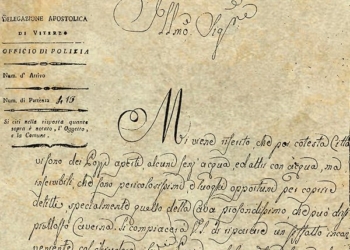 Illmo. Sigre
DELEGAZIONE APOSTOLICA
DI VITERBO
OFFICIO DI POLIZIA
Num. d'Arrivo
Num. di Partenza 415
Si citi nella risposta quanto
sopra è notato, l'Oggetto,
e la Comune.
Mi viene riferito che per cotesta Città
visono dei Pozzi aperti alcuni senz'acqua ed altri con acqua, ma
inservibili che sono pericolosissimi e luoghi opportuni per coprire
delitti specialmente quello della Cava profondissimo che può dirsi
piuttosto Caverna. Si compiacerà E.S. di riparare un siffatto incon